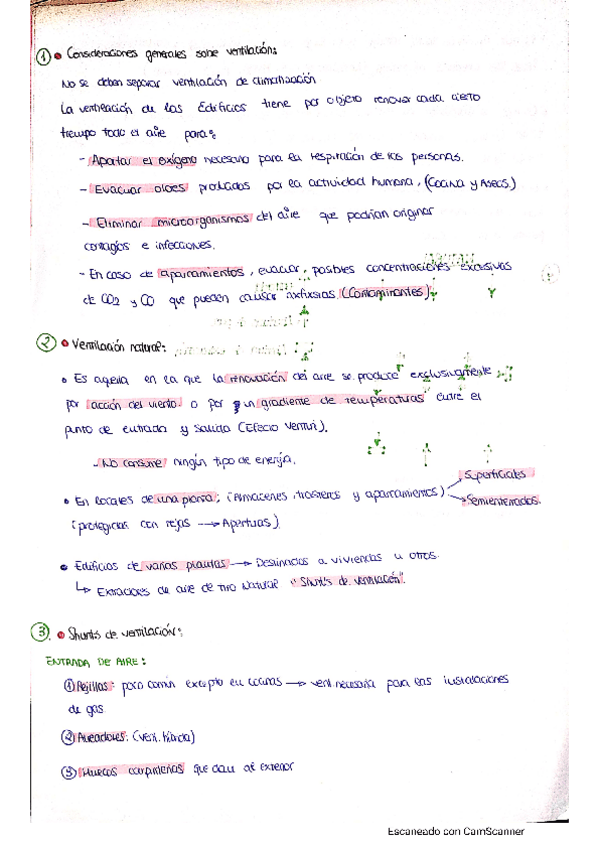 ① • Consideraciones generales sobre ventilación:
No se deben separar ventilación de climatización
La ventilación de los Edificios tiene por objeto renovar cada cierto
tiempo todo el aire para:
- Aportar el oxígeno necesario para la respiración de las personas.
- Evacuar olores producidos por la actividad humana, (Cocina y Aseos)
- Eliminar microorganismos del aire que podrían originar
contagios e infecciones.
- En caso de aparcamientos, evacuar posibles concentraciones excesivas
de CO2 y CO que pueden causar asfixsias (Contaminantes)
② • Ventilación natural:
• Es aquella en la que la renovación del aire se produce exclusivamente
por acción del viento o por un gradiente de temperaturas entre el
punto de entrada y salida (Efecto Venturi).
- No consume ningún tipo de energía.
• En locales de una planta; (Almacenes, trasteros y aparcamientos) → Superficiales
→ Semienterrados.
(protegidas con rejas → Aperturas)
• Edificios de varias plantas → Destinados a viviendas u otros.
↳ Extractores de aire de tiro Natural "Shunts de ventilación".
③ • Shunts de ventilación:
ENTRADA DE AIRE:
① Rejillas: poco común excepto en cocinas → vent. necesaria para las instalaciones
de gas
② Aireadores: (vent. híbrida)
③ Huecos carpinterías que dan al exterior
Escaneado con CamScanner